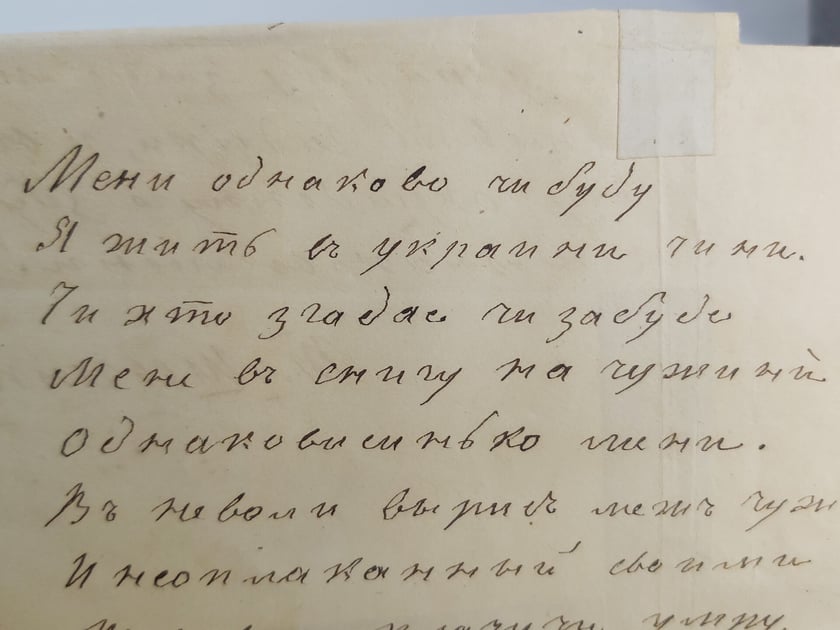 Мени однаково чи буду
Я жить въ украини чи ни.
Чи хто згадає чи забуде
Мене въ снигу на чужині
Однаковисинько мени.
Въ неволи вырисъ межъ чуж
И неоплаканный своими
плачучи умру.